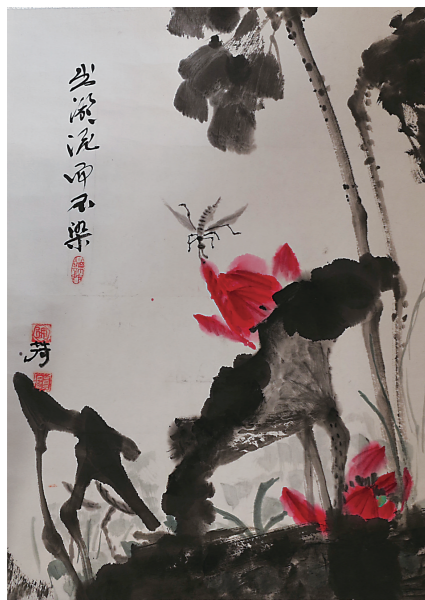 出淤泥而不染
荷